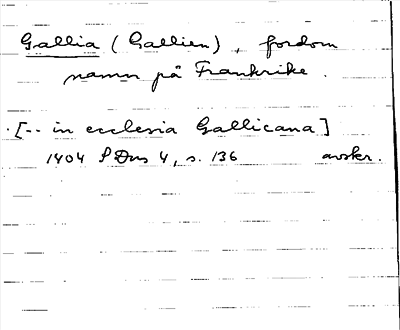 Gallia (Gallien), fordom
namn på Frankrike.
[-- in ecclesia Gallicana]
1404 SDns 4, s. 136 avskr.